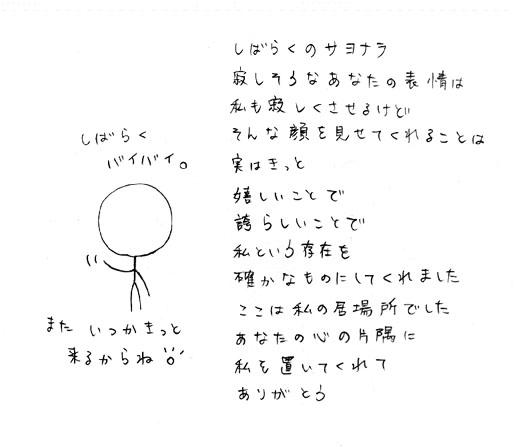 しばらくのサヨナラ
寂しそうなあなたの表情は
私も寂しくさせるけど
そんな顔を見せてくれることは
実はきっと
嬉しいことで
誇らしいことで
私という存在を
確かなものにしてくれました
ここは私の居場所でした
あなたの心の片隅に
私を置いてくれて
ありがとう
しばらく
バイバイ。
また いつかきっと
来るからね